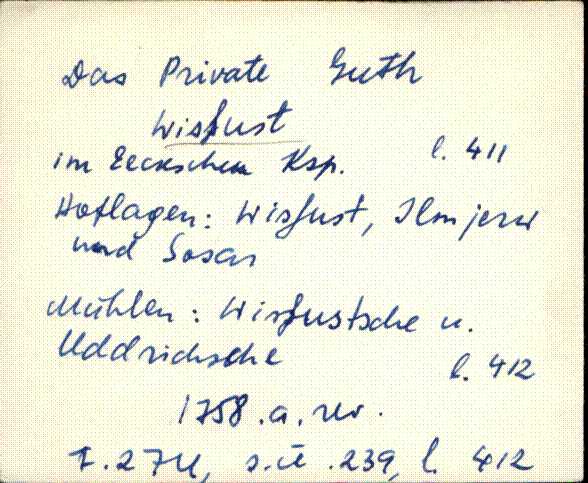 Das Private Guth
Wisfust
im Eeckschen Ksp. l. 411
Hoflagen: Wisfust, Ilmjerw
und Sosar
Mühlen: Wisfustsche u.
Uddrichsche l. 412
1758.a. rev.
F. 274, s.-ü. 239, l. 412